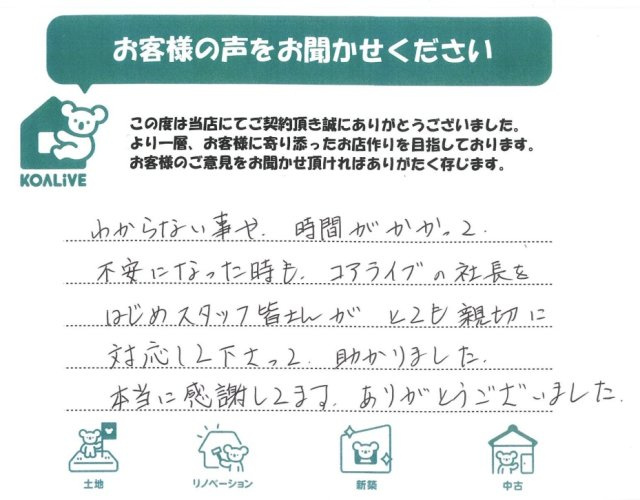 お客様の声をお聞かせください
この度は当店にてご契約頂き誠にありがとうございました。
より一層、お客様に寄り添ったお店作りを目指しております。
お客様のご意見をお聞かせ頂ければありがたく存じます。
KOALiVE
わからない事や、時間がかかって、
不安になった時も、コアライブの社長を
はじめスタッフ皆さんが とても親切に
対応して下さって、助かりました。
本当に感謝してます。ありがとうございました。
土地
リノベーション
新築
中古